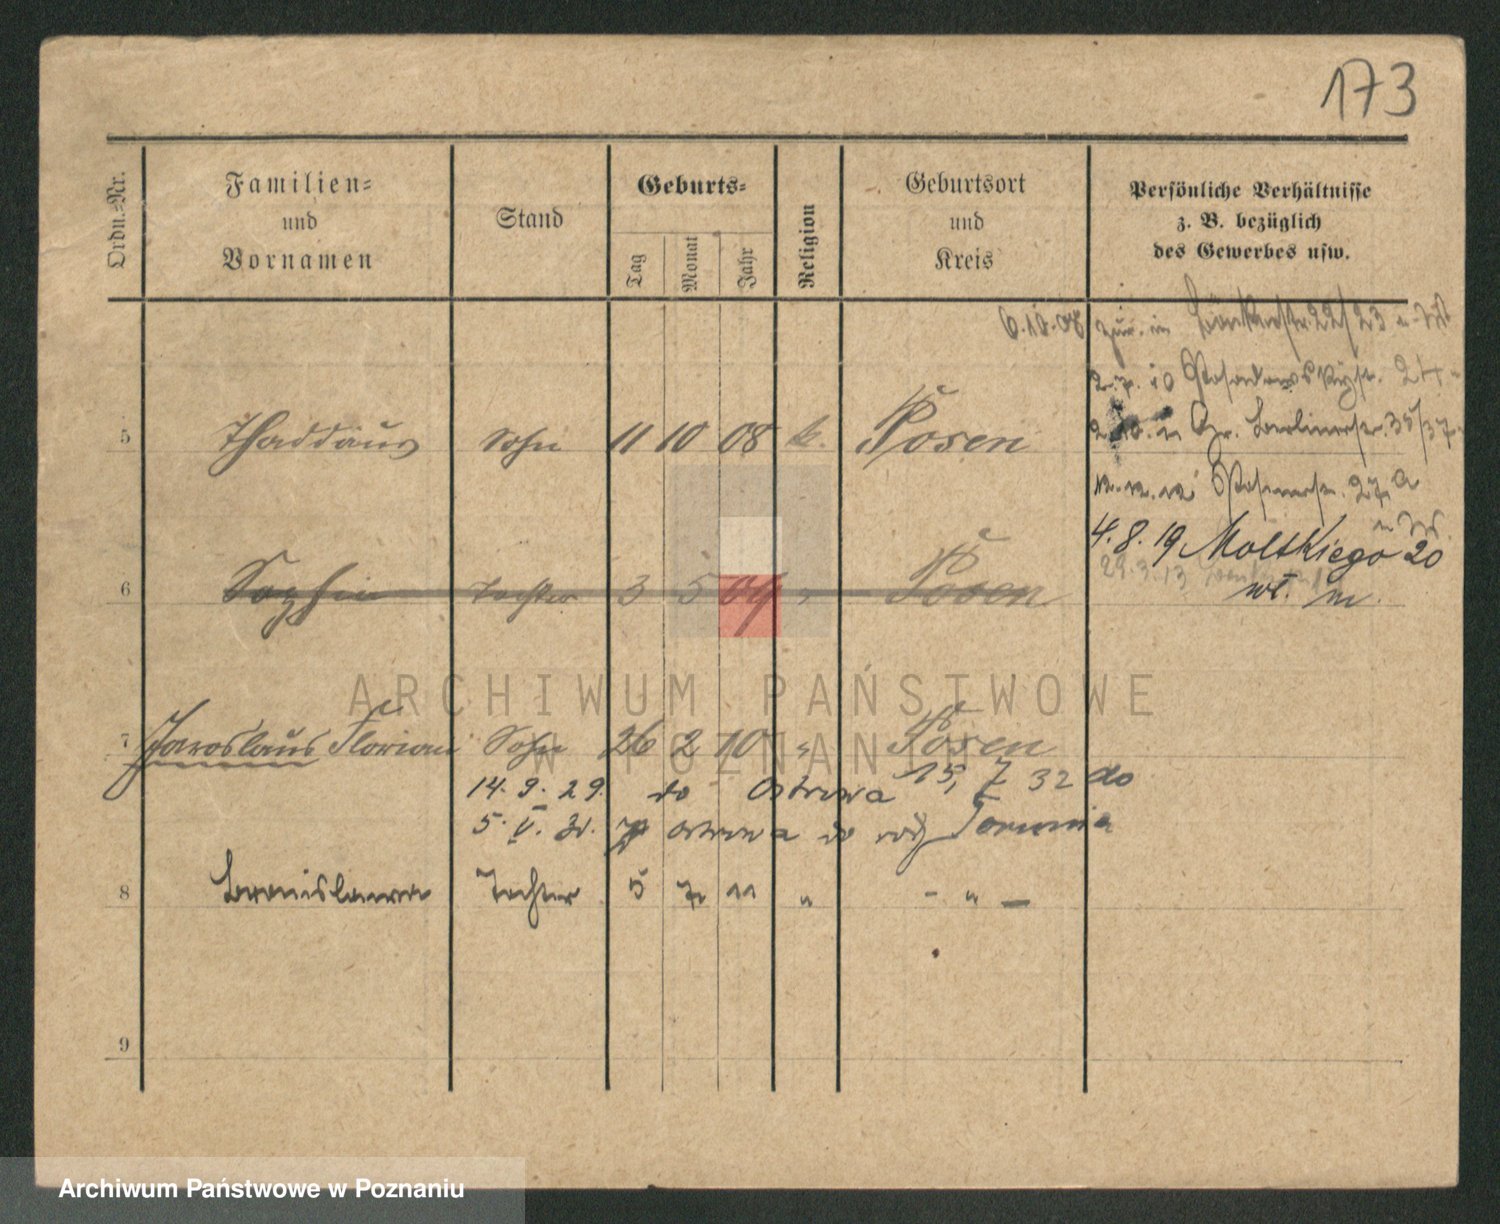 173
Ordn.-Nr.
Familien-
und
Vornamen
Stand
Geburts-
Tag
Monat
Jahr
Religion
Geburtsort
und
Kreis
Persönliche Verhältnisse
z. B. bezüglich
des Gewerbes usw.
22/23
2.7.10 24
Gr. Berlinerstr. 35/37
5 Thaddäus Sohn 11 10 08 k. Posen
12.12.12 Posenerstr. 27a
4.8.19 Moltkiego 20
29.3.13
wł. m.
6 Sophie Tochter 3 5 09 " Posen
ARCHIWUM PAŃSTWOWE
W POZNANIU
7 Jaroslaus Florian Sohn 26 2 10 " Posen
14. 9. 29. do Ostrowa 15, 7 32 do
5. V. 31. z Ostrowa do Torunia
8 Bronislawa Tochter 5 7 11 " - " -
9
Archiwum Państwowe w Poznaniu